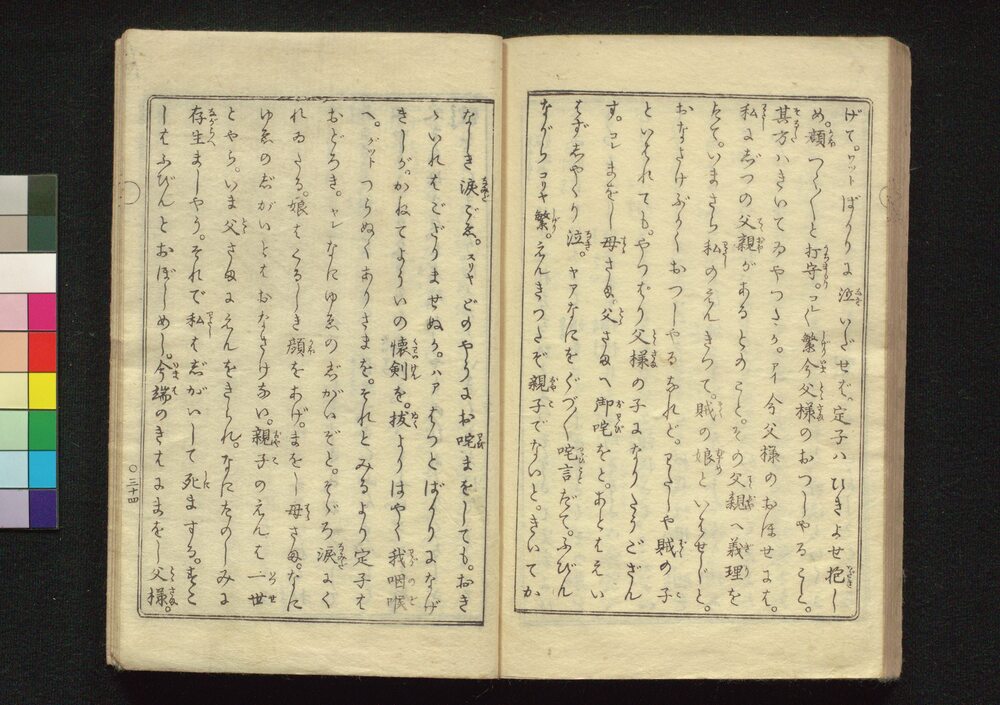 げて。ワットばかりに泣いだせば、定子ハひきよせ抱し
め。顔つく〴〵と打守。コレ繁今父様のおつしやること。
其方ハきいてゐやつたか。アイ今父様のおほせには。
私にはべつの父親があるとのこと。その父親へ義理を
たて。いまさら私のえんきつて。賊の娘といはせじと。
おなさけぶかくおつしやるなれど。わたしや賊の子
といはれても。やつはり父様の子になりたうござん
す。コレまをし母さま。父さまへ御咤をと。あとはえい
はずしやくり泣。ヤアなにをぐづ〳〵咤言だて。ふびん
ながらコリヤ繁。えんきつたぞ親子でないと。きいてか
なしき涙ごゑ。スリヤどのやうにお咤まをしても。おき
ゝいれはござりませぬか。ハアはつとばかりになげ
きしが。かねてよういの懐剣を。抜よりはやく我咽喉
へ。グットつらぬくありさまを。それとみるより定子は
おどろき。ヤレなにゆゑのじがいぞと。そゞろ涙にく
れゐたる。娘はくるしき顔をあげ。まをし母さま。なに
ゆゑのじがいとはおなさけない。親子のえんは一世
とやら。いま父さまにえんをきられ。なにたのしみに
存生ましやう。それで私はじがいして死まする。すこ
しはふびんとおぼしめし。今端のきはにまをし父様。
三十四